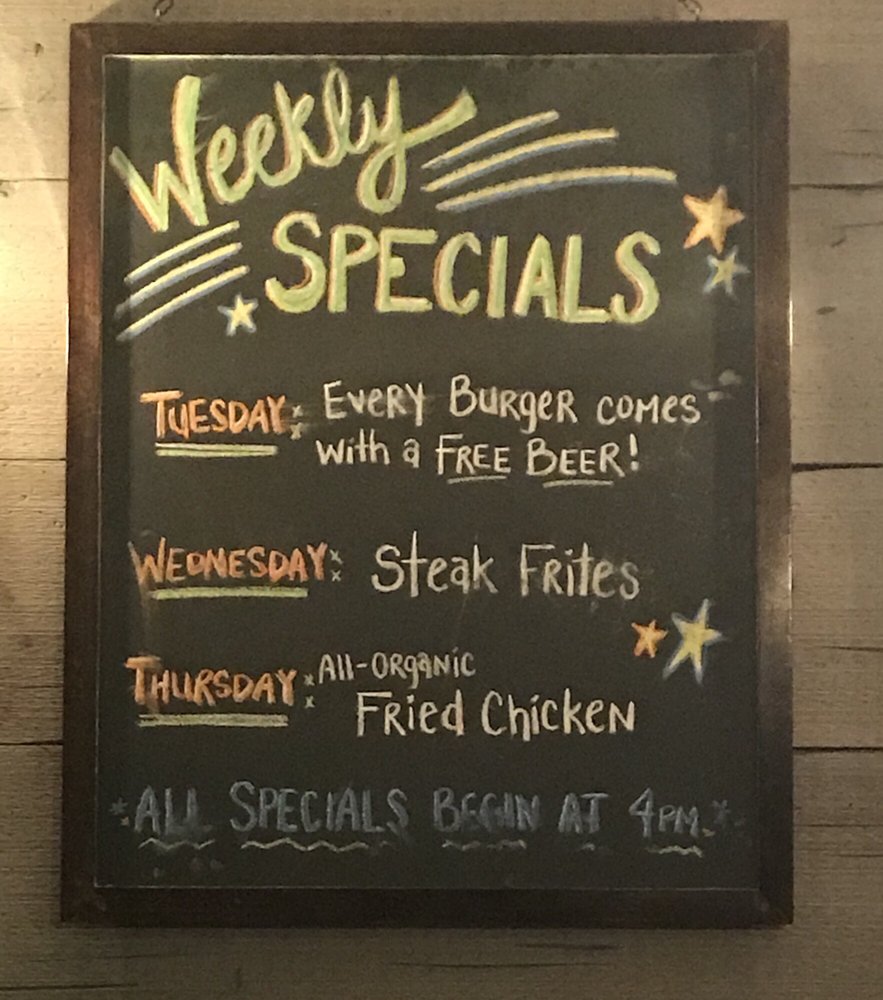 Weekly
SPECIALS
TUESDAY: EVERY BURGER COMES
with a FREE BEER!
WEDNESDAY: Steak Frites
THURSDAY: All-ORGANIC
Fried Chicken
*ALL SPECIALS BEGIN AT 4PM*